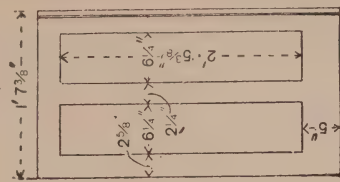 1' 7 3/8"
6 1/4"
2' 5 3/8"
2 5/8"
6 1/4"
2 1/4"
5"